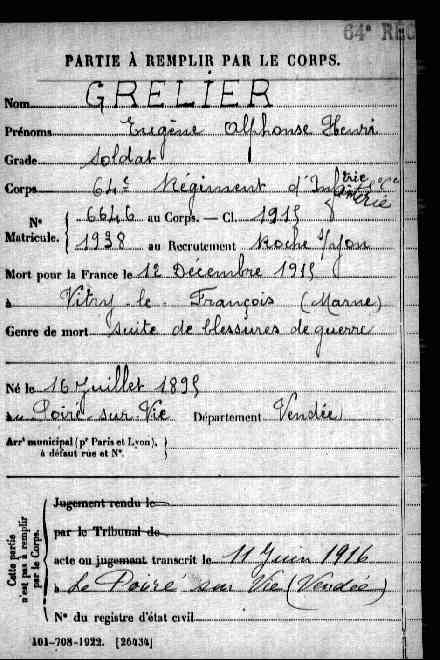 64e REG
PARTIE À REMPLIR PAR LE CORPS.
Nom GRELIER
Prénoms Eugène Alphonse Henri
Grade Soldat
Corps 64e Régiment d'Infterie
No 6646 au Corps. — Cl. 1915
Matricule. 1938 au Recrutement Roche s/yon
Mort pour la France le 12 Décembre 1915
à Vitry-le-François (Marne)
Genre de mort suite de blessures de guerre
Né le 16 Juillet 1895
au Poiré-sur-Vie Département Vendée
Arrt municipal (pr Paris et Lyon),
à défaut rue et No.
Cette partie
n'est pas à remplir
par le Corps.
Jugement rendu le
par le Tribunal de
acte ou jugement transcrit le 11 Juin 1916
à Le Poiré sur Vie (Vendée)
No du registre d'état civil
101-708-1922. [26434]